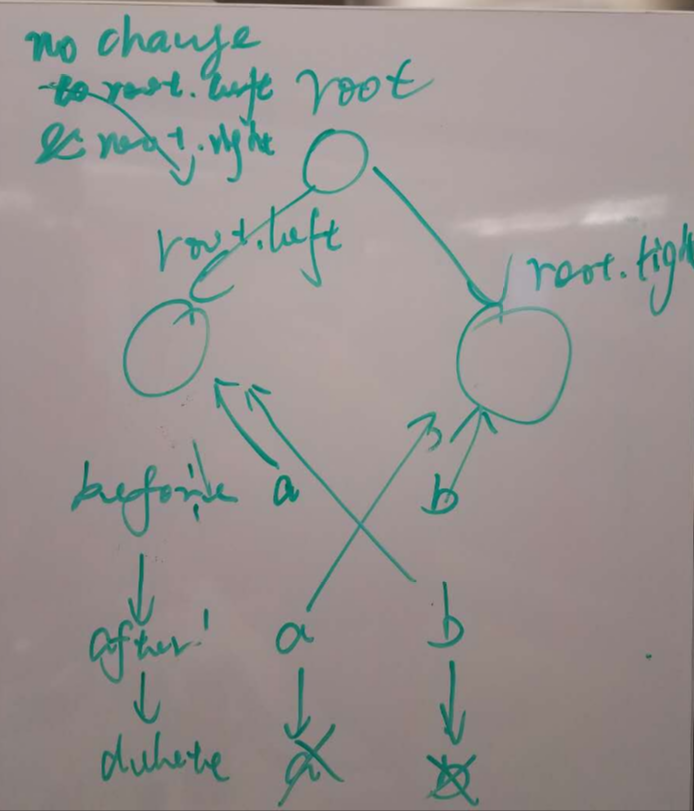 no change
to root.left
& root.right
root
root.left
root.righ
before! a b
after! a b
delete a b